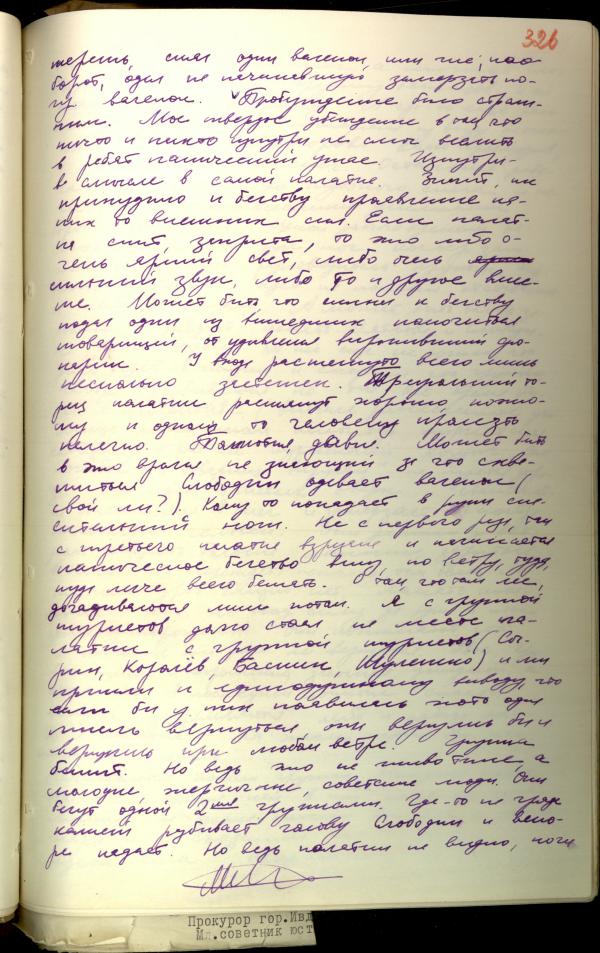 326
терень, снял один валенок, или же, нао-
борот, одел не
ну валенок. Пробуждение было страш-
ным. Мое твердое убеждение в том, что
ничто и никто изнутри не смог вселить
в ребят панический ужас. Изнутри -
в смысле в самой палатке. Значит, их
принудило к бегству проявление ка-
ких то внешних сил. Если палат-
ка снит, закрыта, то это либо о-
чень яркий свет, либо очень
сильный звук, либо то и другое вмес-
те. Может быть что сигнал к бегству
подал один из вышедших помочиться
товарищей, от удивления выронивший фо-
нарик. У входа расстегнуто всего лишь
несколько застежек. Центральный то-
рец палатки растянут хорошо, поэто-
му и одному то человеку пролезть
нелегко. Темнота, давка. Может быть
в это время не знающий за что схва-
титься Слободин одевает валенок (
свой ли?). Кому то попадает в руки спа-
сительный нож. Не с первого раза, так
с третьего палатка взрезана и начинается
паническое бегство вниз, по ветру, туда,
куда легче всего бежать. О том, что там лес,
догадываются лишь потом. Я с группой
туристов долго стоял на месте па-
латки с группой туристов (Сог-
рин, Королёв, Баскин, Шулешко) и мы
пришли к единодушному выводу, что
если бы у них появилась хотя одна
мысль вернуться они вернулись бы и
вернулись при любом ветре. Группа
бежит. Но ведь это не животные, а
молодые энергичные, советские люди. Они
бегут одной 2мя группами. Где-то на гряде
камней разбивает голову Слободин и вско-
ре падает. Но ведь палатки не видно, ноги
Прокурор гор.Ивд
Мл.советник юст